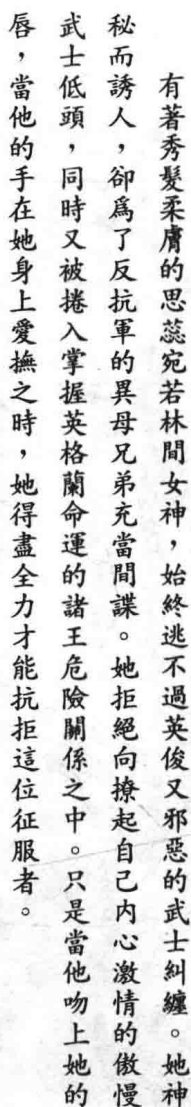 有著秀髮柔膚的思蕊宛若林間女神，始終逃不過英俊又邪惡的武士糾纏。她神
秘而誘人，卻爲了反抗軍的異母兄弟充當間諜。她拒絕向撩起自己內心激情的傲慢
武士低頭，同時又被捲入掌握英格蘭命運的諸王危險關係之中。只是當他吻上她的
唇，當他的手在她身上愛撫之時，她得盡全力才能抗拒這位征服者。